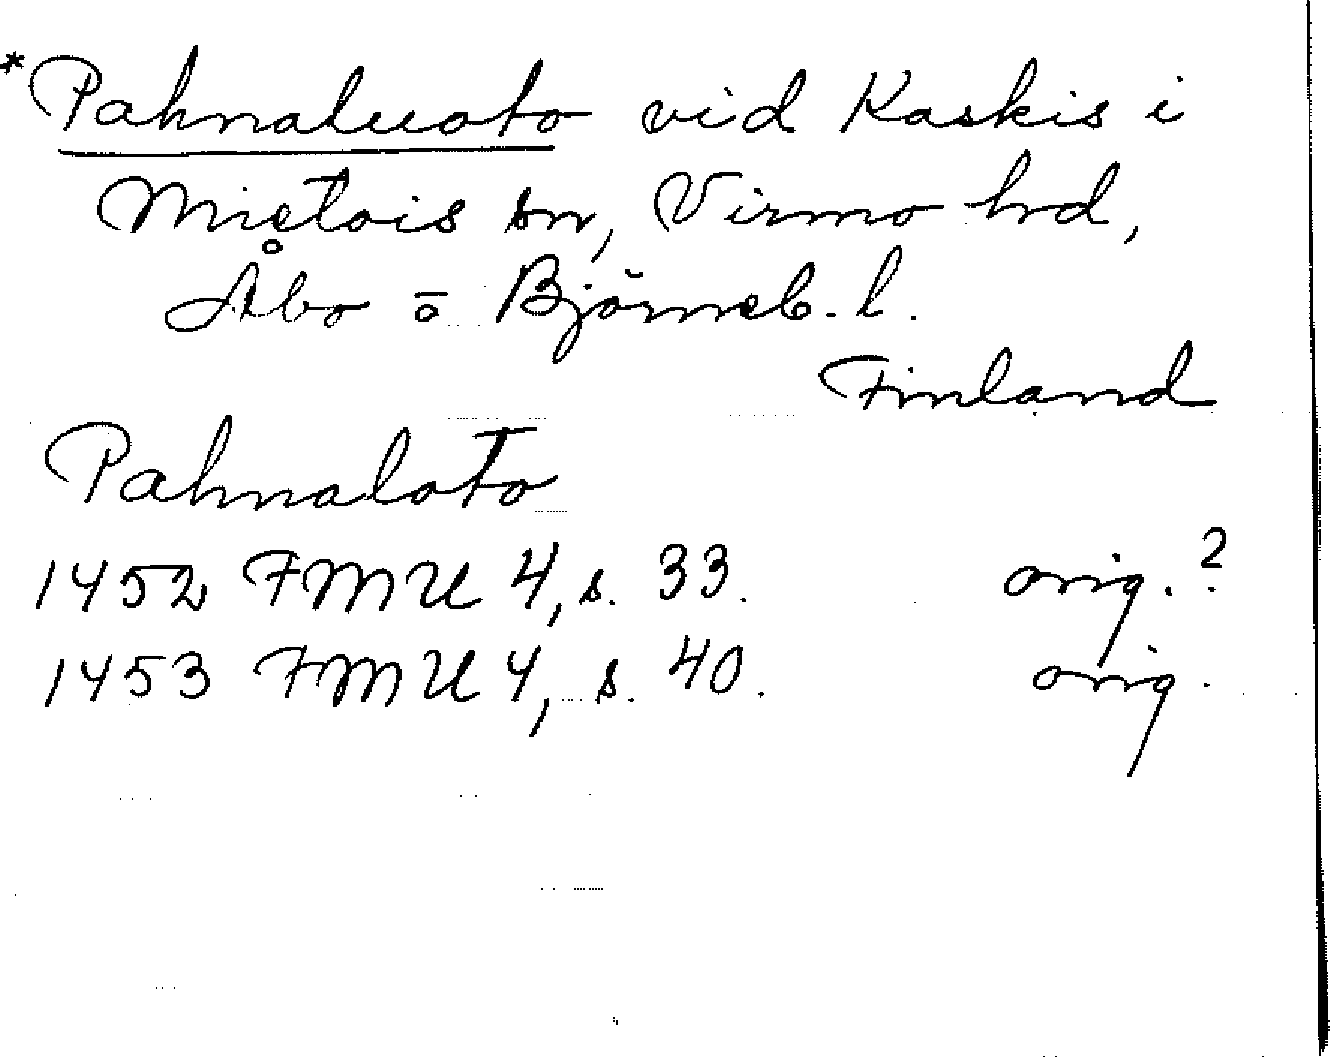 *Pahnaluoto vid Kaskis i
Mietois sn, Virmo hrd,
Åbo o Björneb. l.
Finland
Pahnaloto
1452 FMU 4, s. 33. orig.?
1453 FMU 4, s. 40. orig.